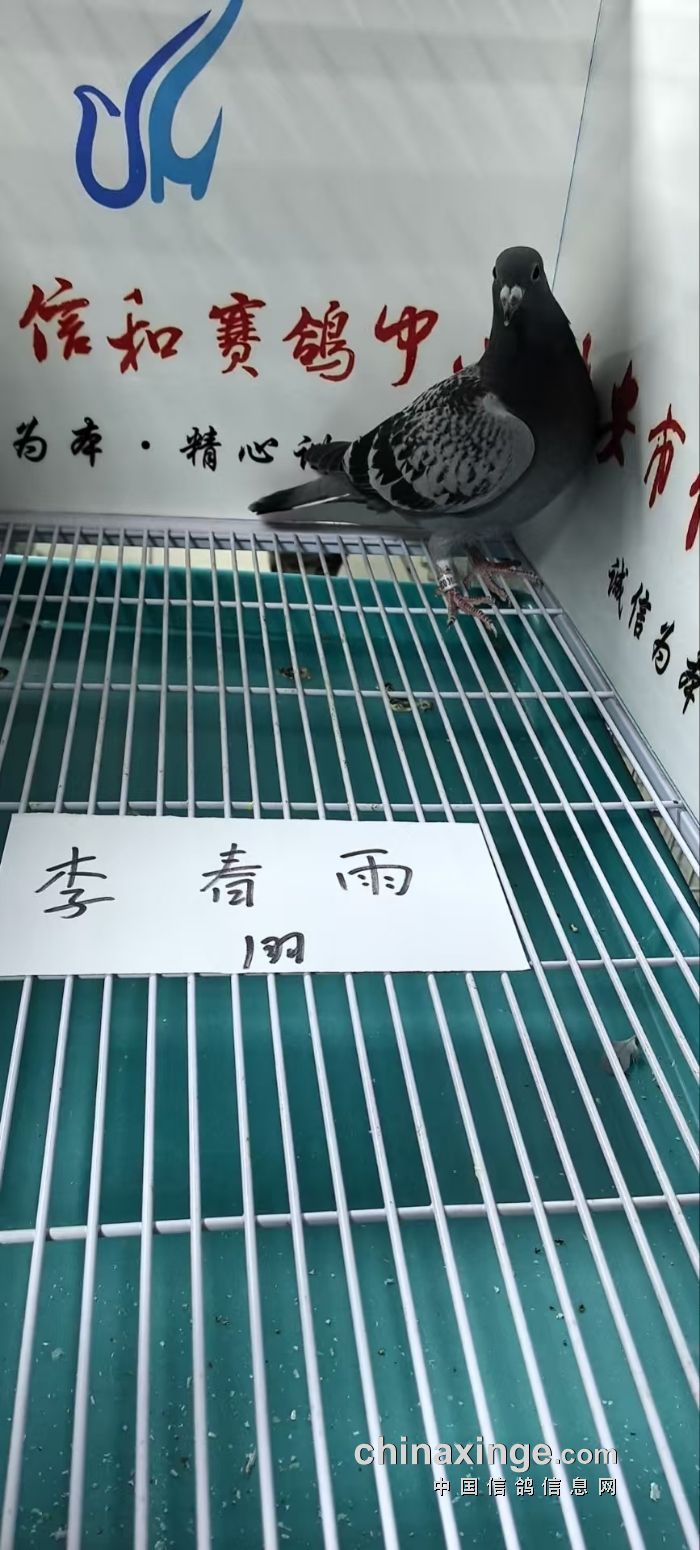 信和赛鸽中
安市信
为本·精心
诚信为本
李春雨
1羽
chinaxinge.com
中国信鸽信息网